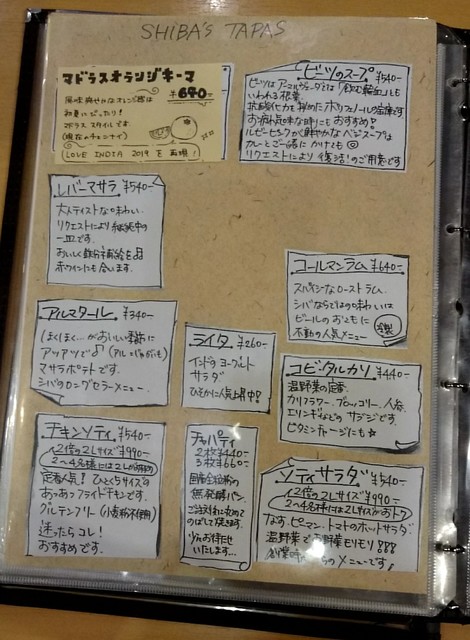 SHIBA'S TAPAS
マドラスオランジキーマ
¥640-
初夏にぴったり!
マドラス スタイルです.
(現在のチェンナイ)
(LOVE INDIA 2019 を再現!)
ビーツのスープ ¥540-
ビーツはアーユルヴェーダでは「飲む輸血」とも
いわれる根菜.
お病気味な時にもおすすめ!
ルビーピンクが鮮やかなベジスープは
カレーとご一緒にかけても◎
リクエストにより復活!のご用意です
レバーマサラ ¥540-
大人テイストな味わい.
リクエストにより継続中の
一皿です.
おいしく鉄分補給を♫
赤ワインにも合います.
コールマンラム ¥640-
スパイシーなローストラム.
シバならではの味わいは
ビールのおともに
不動の人気メニュー
冷製
アルマタール ¥340-
ほくほく…がおいしい季節に
アツアツで♫(アル=じゃがいも)
マサラポテトです.
シバのロングセラーメニュー.
ライタ ¥260-
インドのヨーグルト
サラダ
ひそかに人気上昇中!
ゴビ・タルカリ ¥440-
温野菜の定番.
カリフラワー、ブロッコリー、人参、
エリンギなどの サブジです.
ビタミンチャージにも☆
チキンソティ ¥540-
1.2倍の2Lサイズ ¥990-
2〜4名様には2Lがお薦め
定番人気! ひとくちサイズの
おつまみフライドチキンです.
グルテンフリー (小麦粉不使用)
迷ったらコレ!
おすすめです.
チャパティ
2枚 ¥440-
3枚 ¥660-
国産全粒粉の
無発酵パン.
ご注文毎に丸めて
のばして焼きます.
少々お待ちを
いたします…
ソティサラダ ¥540-
1.2倍の2Lサイズ ¥990-
2〜4名様には2Lサイズがおトク
なす、ピーマン、トマトのホットサラダ.
温野菜でお野菜モリモリ!!!
創業時からのメニューです!